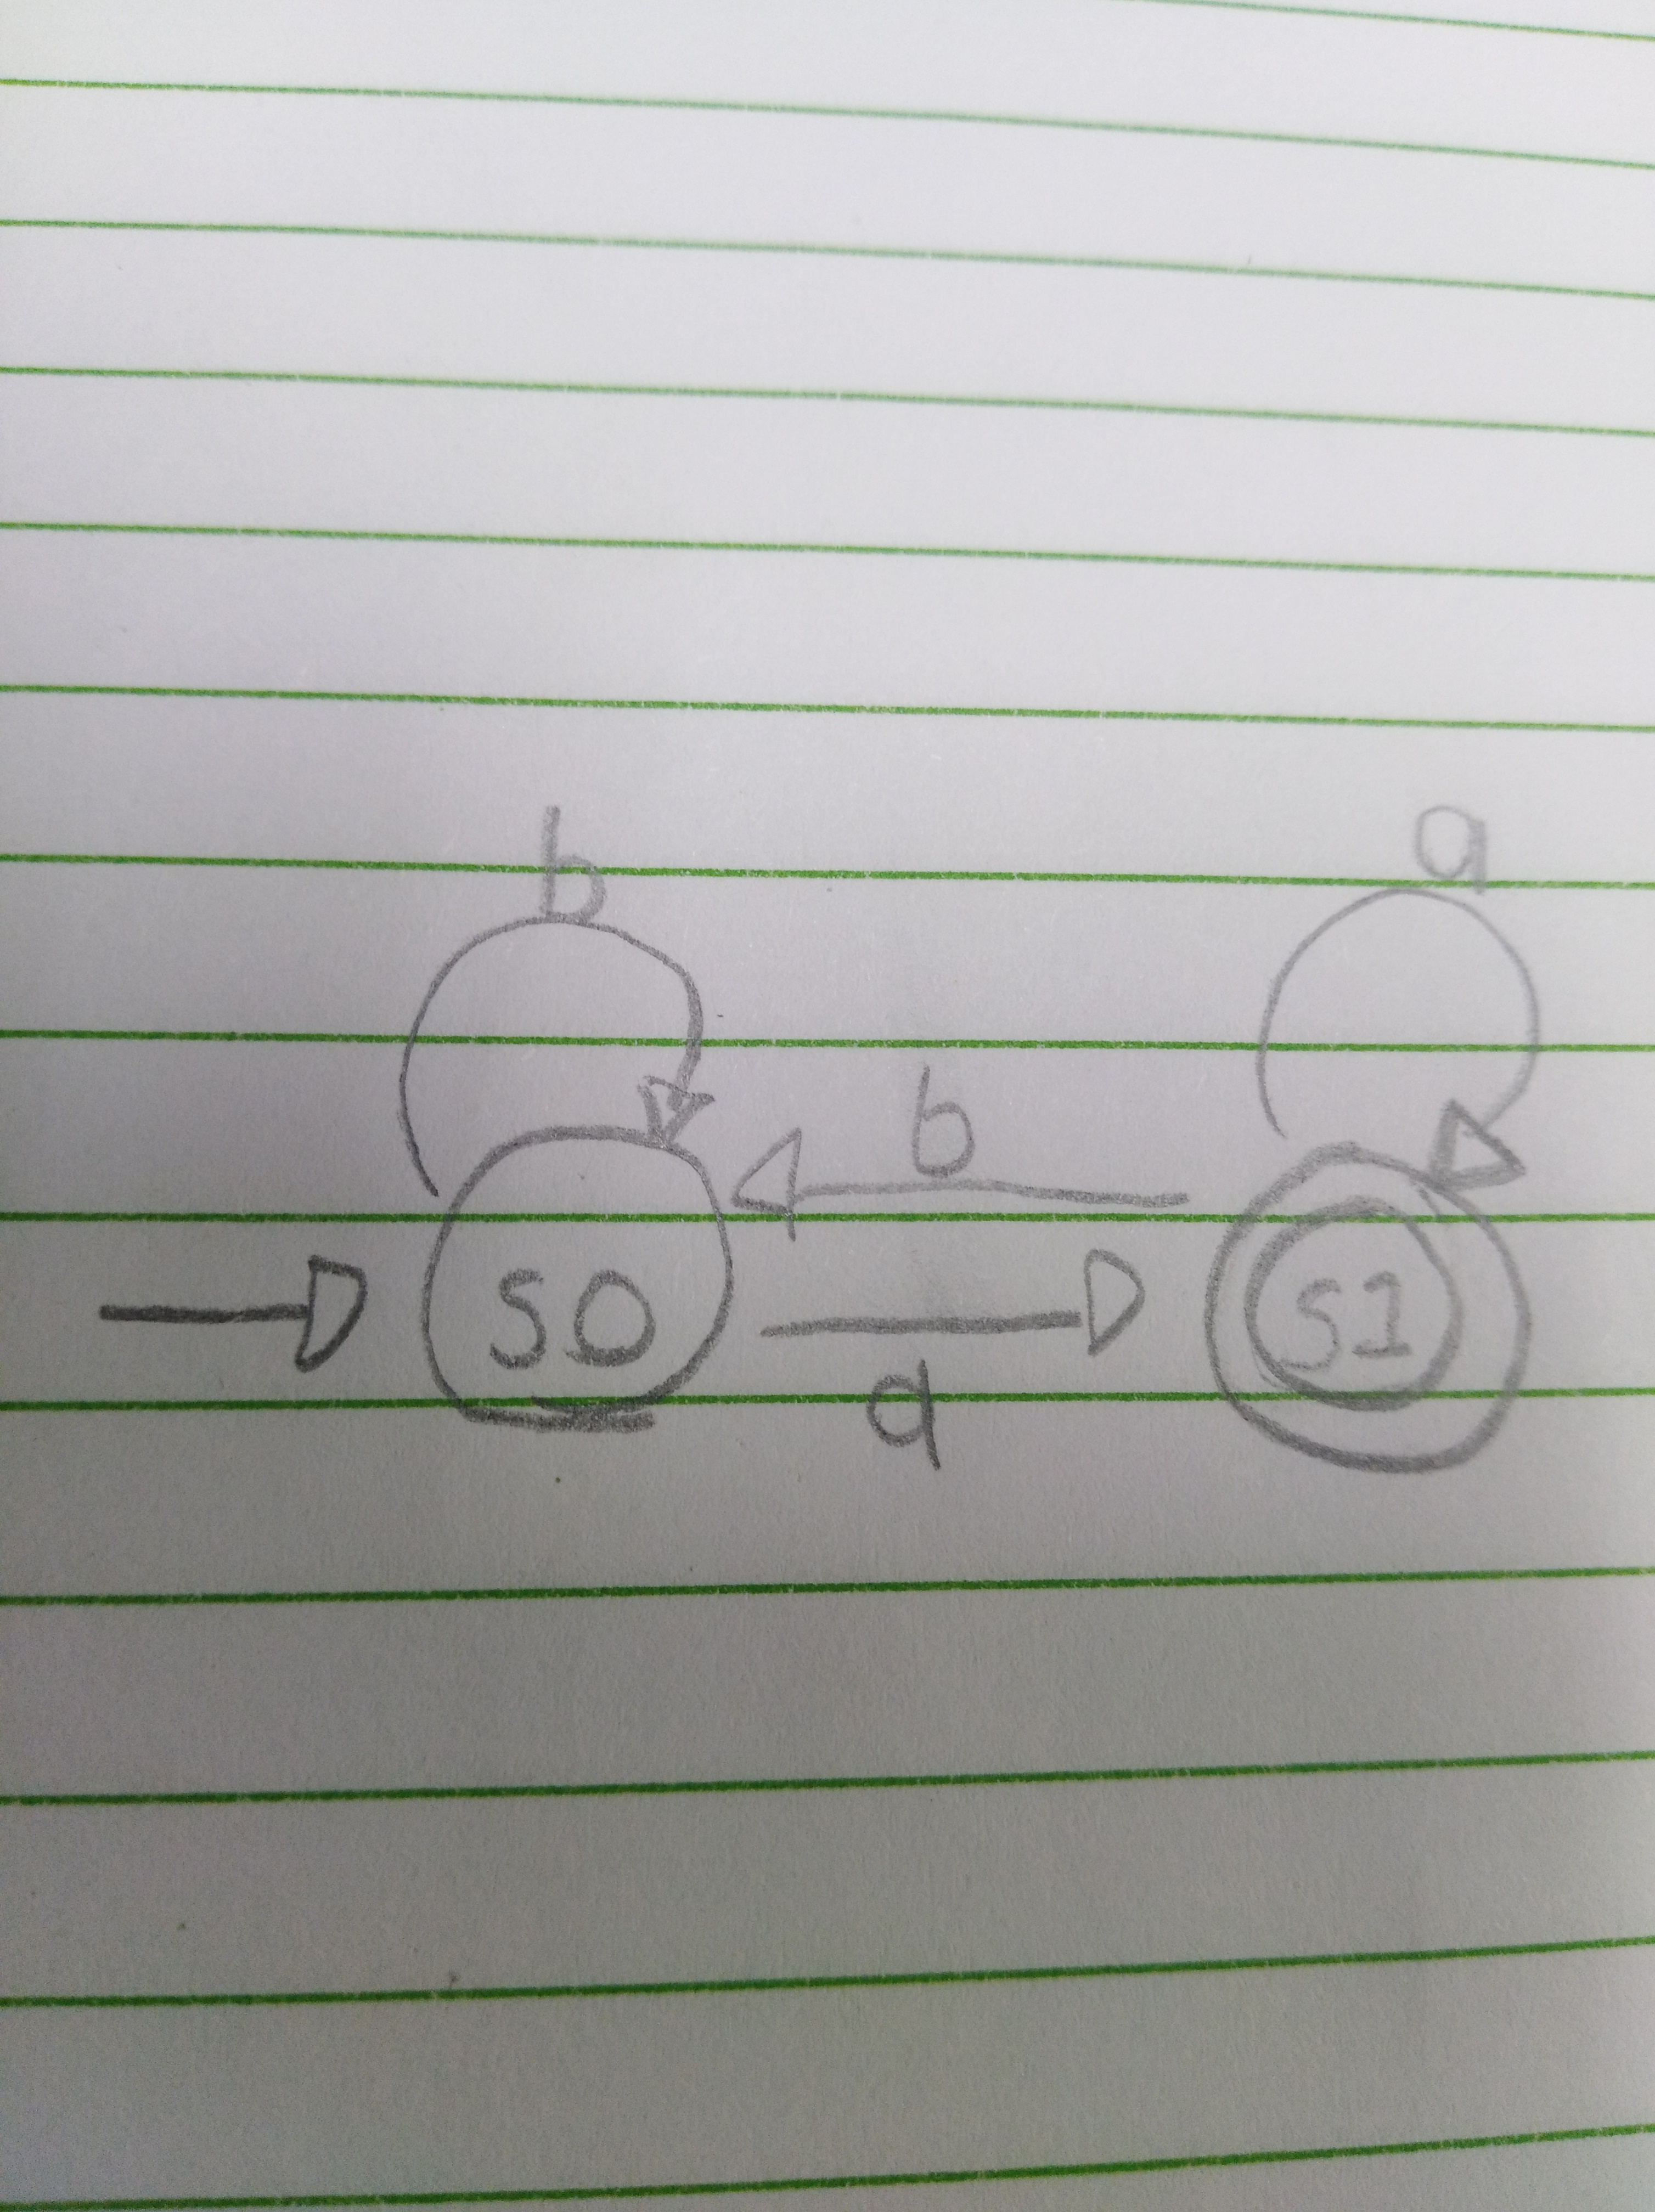 b
a
b
S0
S1
a